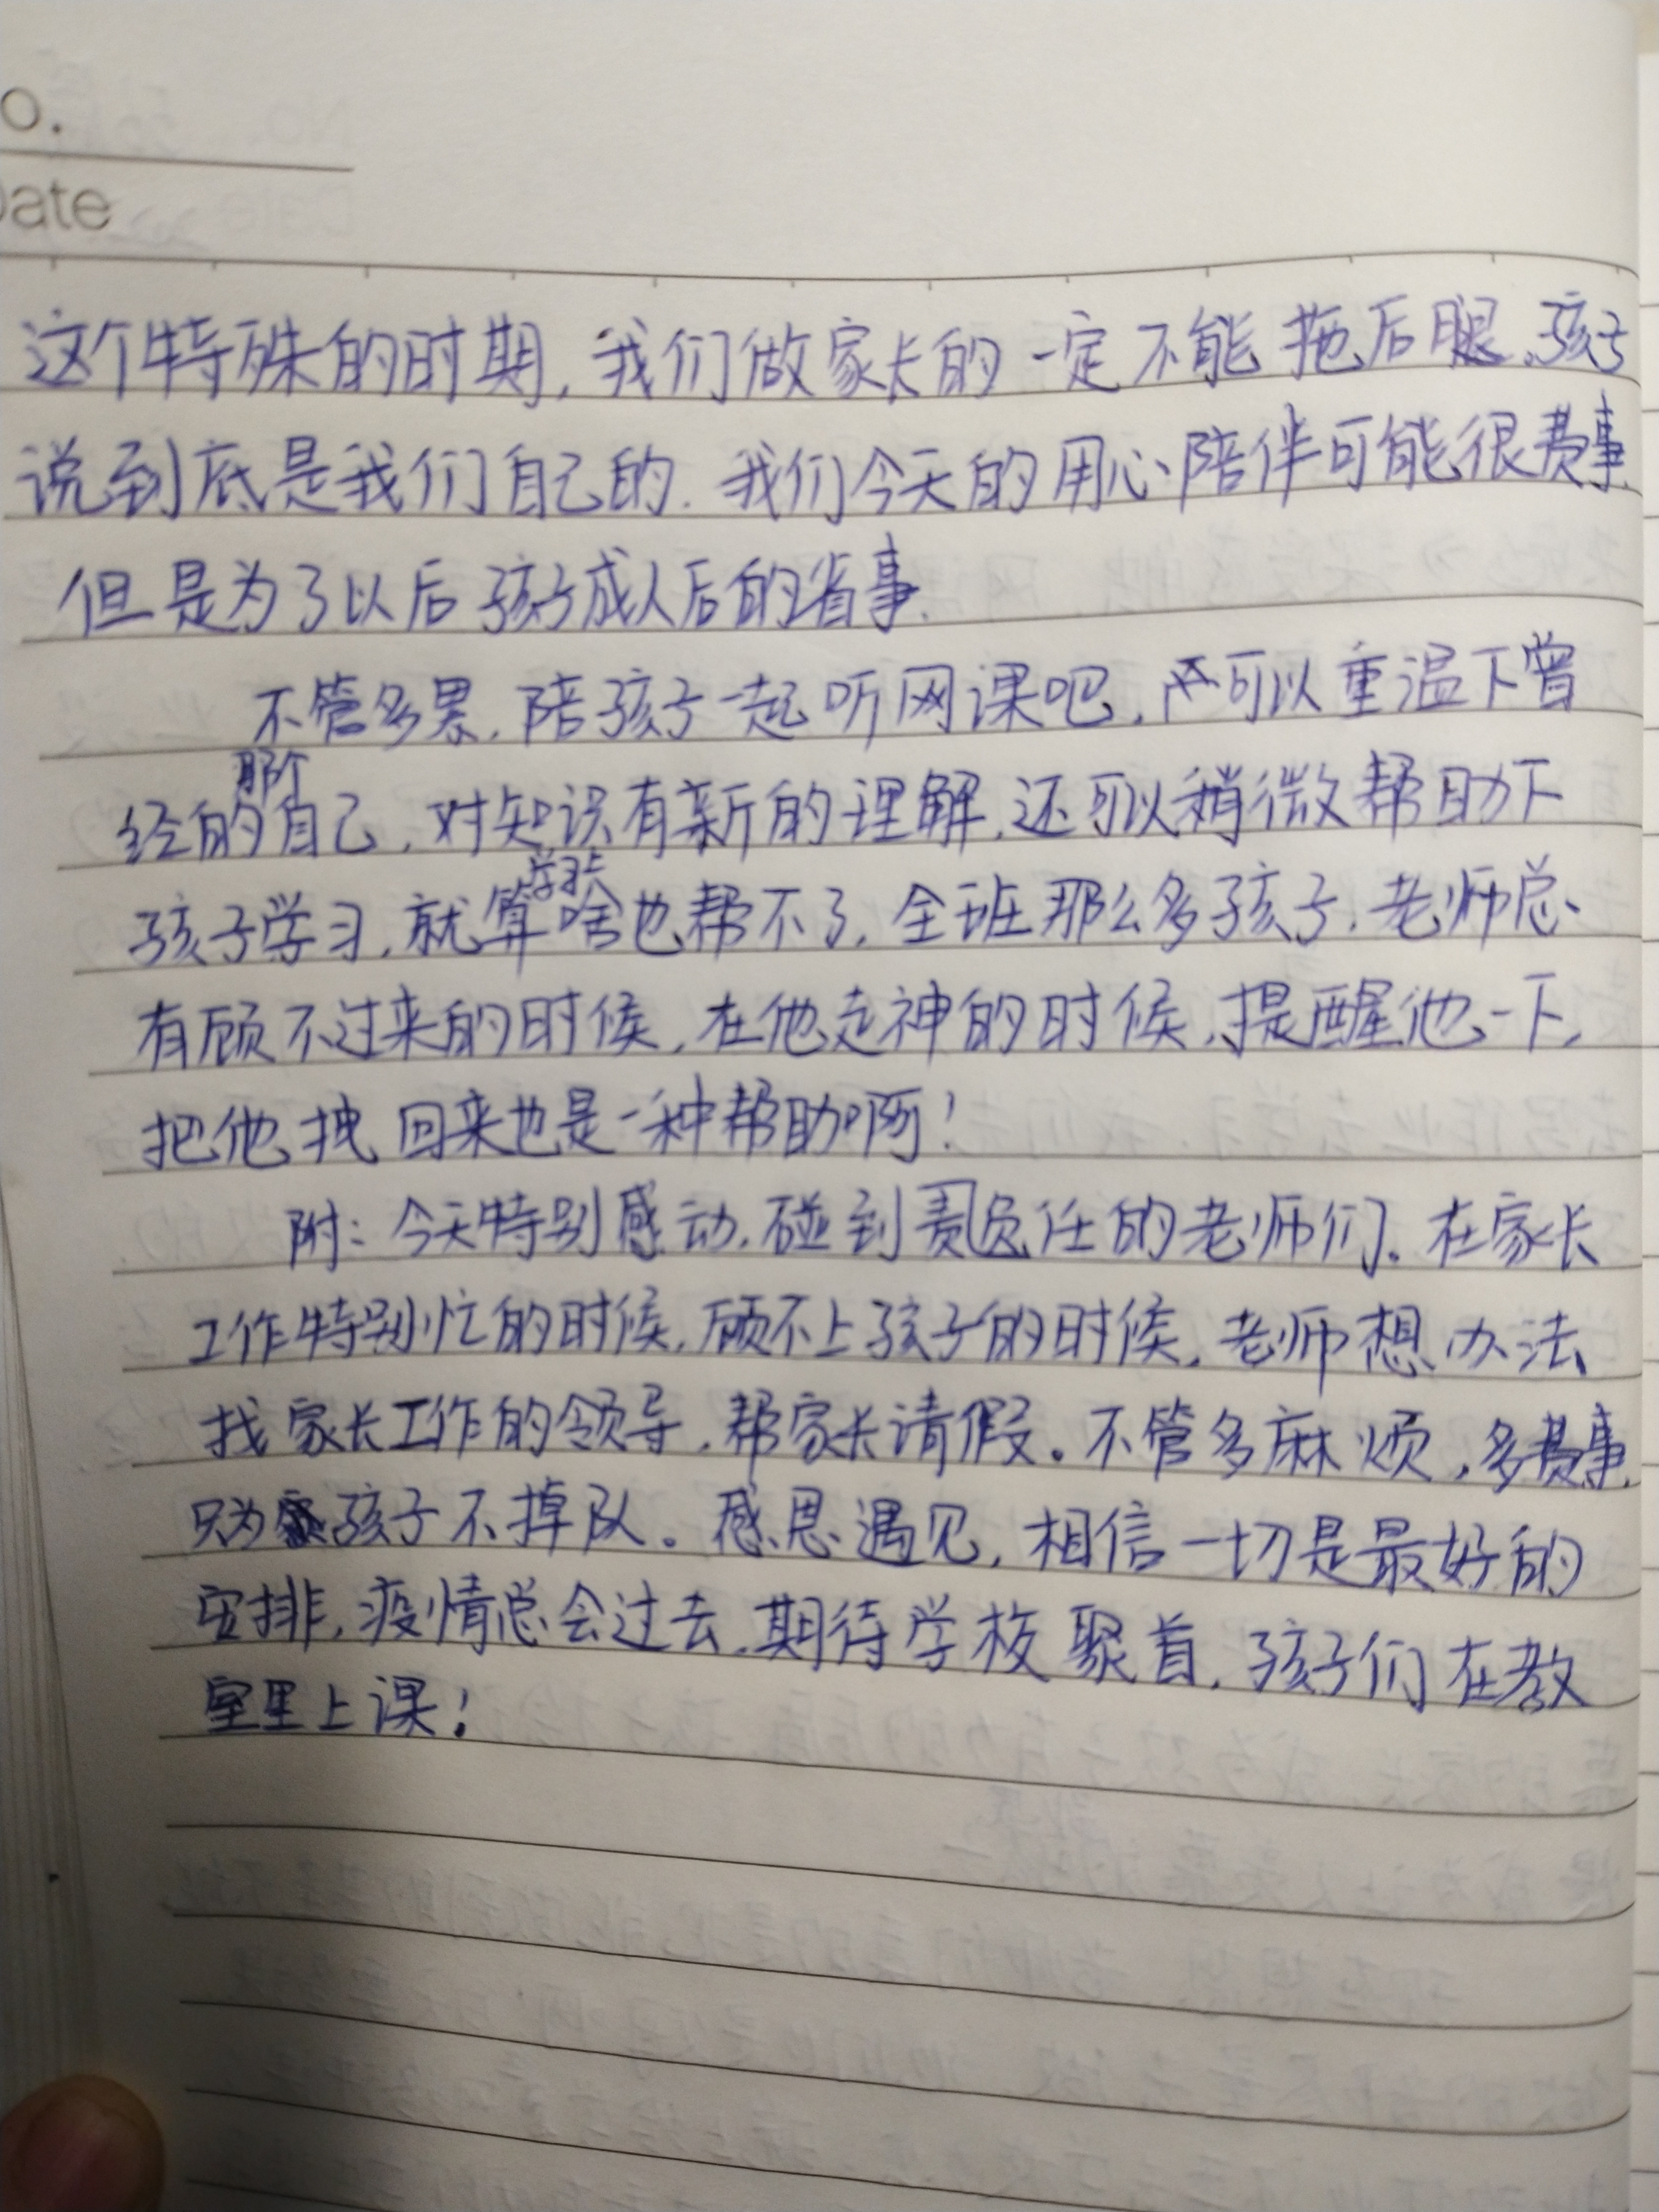 o.
Date
这个特殊的时期,我们做家长的一定不能拖后腿.孩子
说到底是我们自己的.我们今天的用心陪伴可能很费事.
但是为了以后孩子成人后的省事.
不管多累,陪孩子一起听网课吧,可以重温下曾
经的那个自己,对知识有新的理解,还可以稍微帮助下
孩子学习,就算学习上啥也帮不了,全班那么多孩子,老师总
有顾不过来的时候,在他走神的时候,提醒他一下,
把他拽回来也是一种帮助啊!
附:今天特别感动,碰到责负任的老师们。在家长
工作特别忙的时候,顾不上孩子的时候,老师想办法
找家长工作的领导,帮家长请假。不管多麻烦,多费事,
只为孩子不掉队。感恩遇见,相信一切是最好的
安排,疫情总会过去,期待学校聚首,孩子们在教
室里上课!